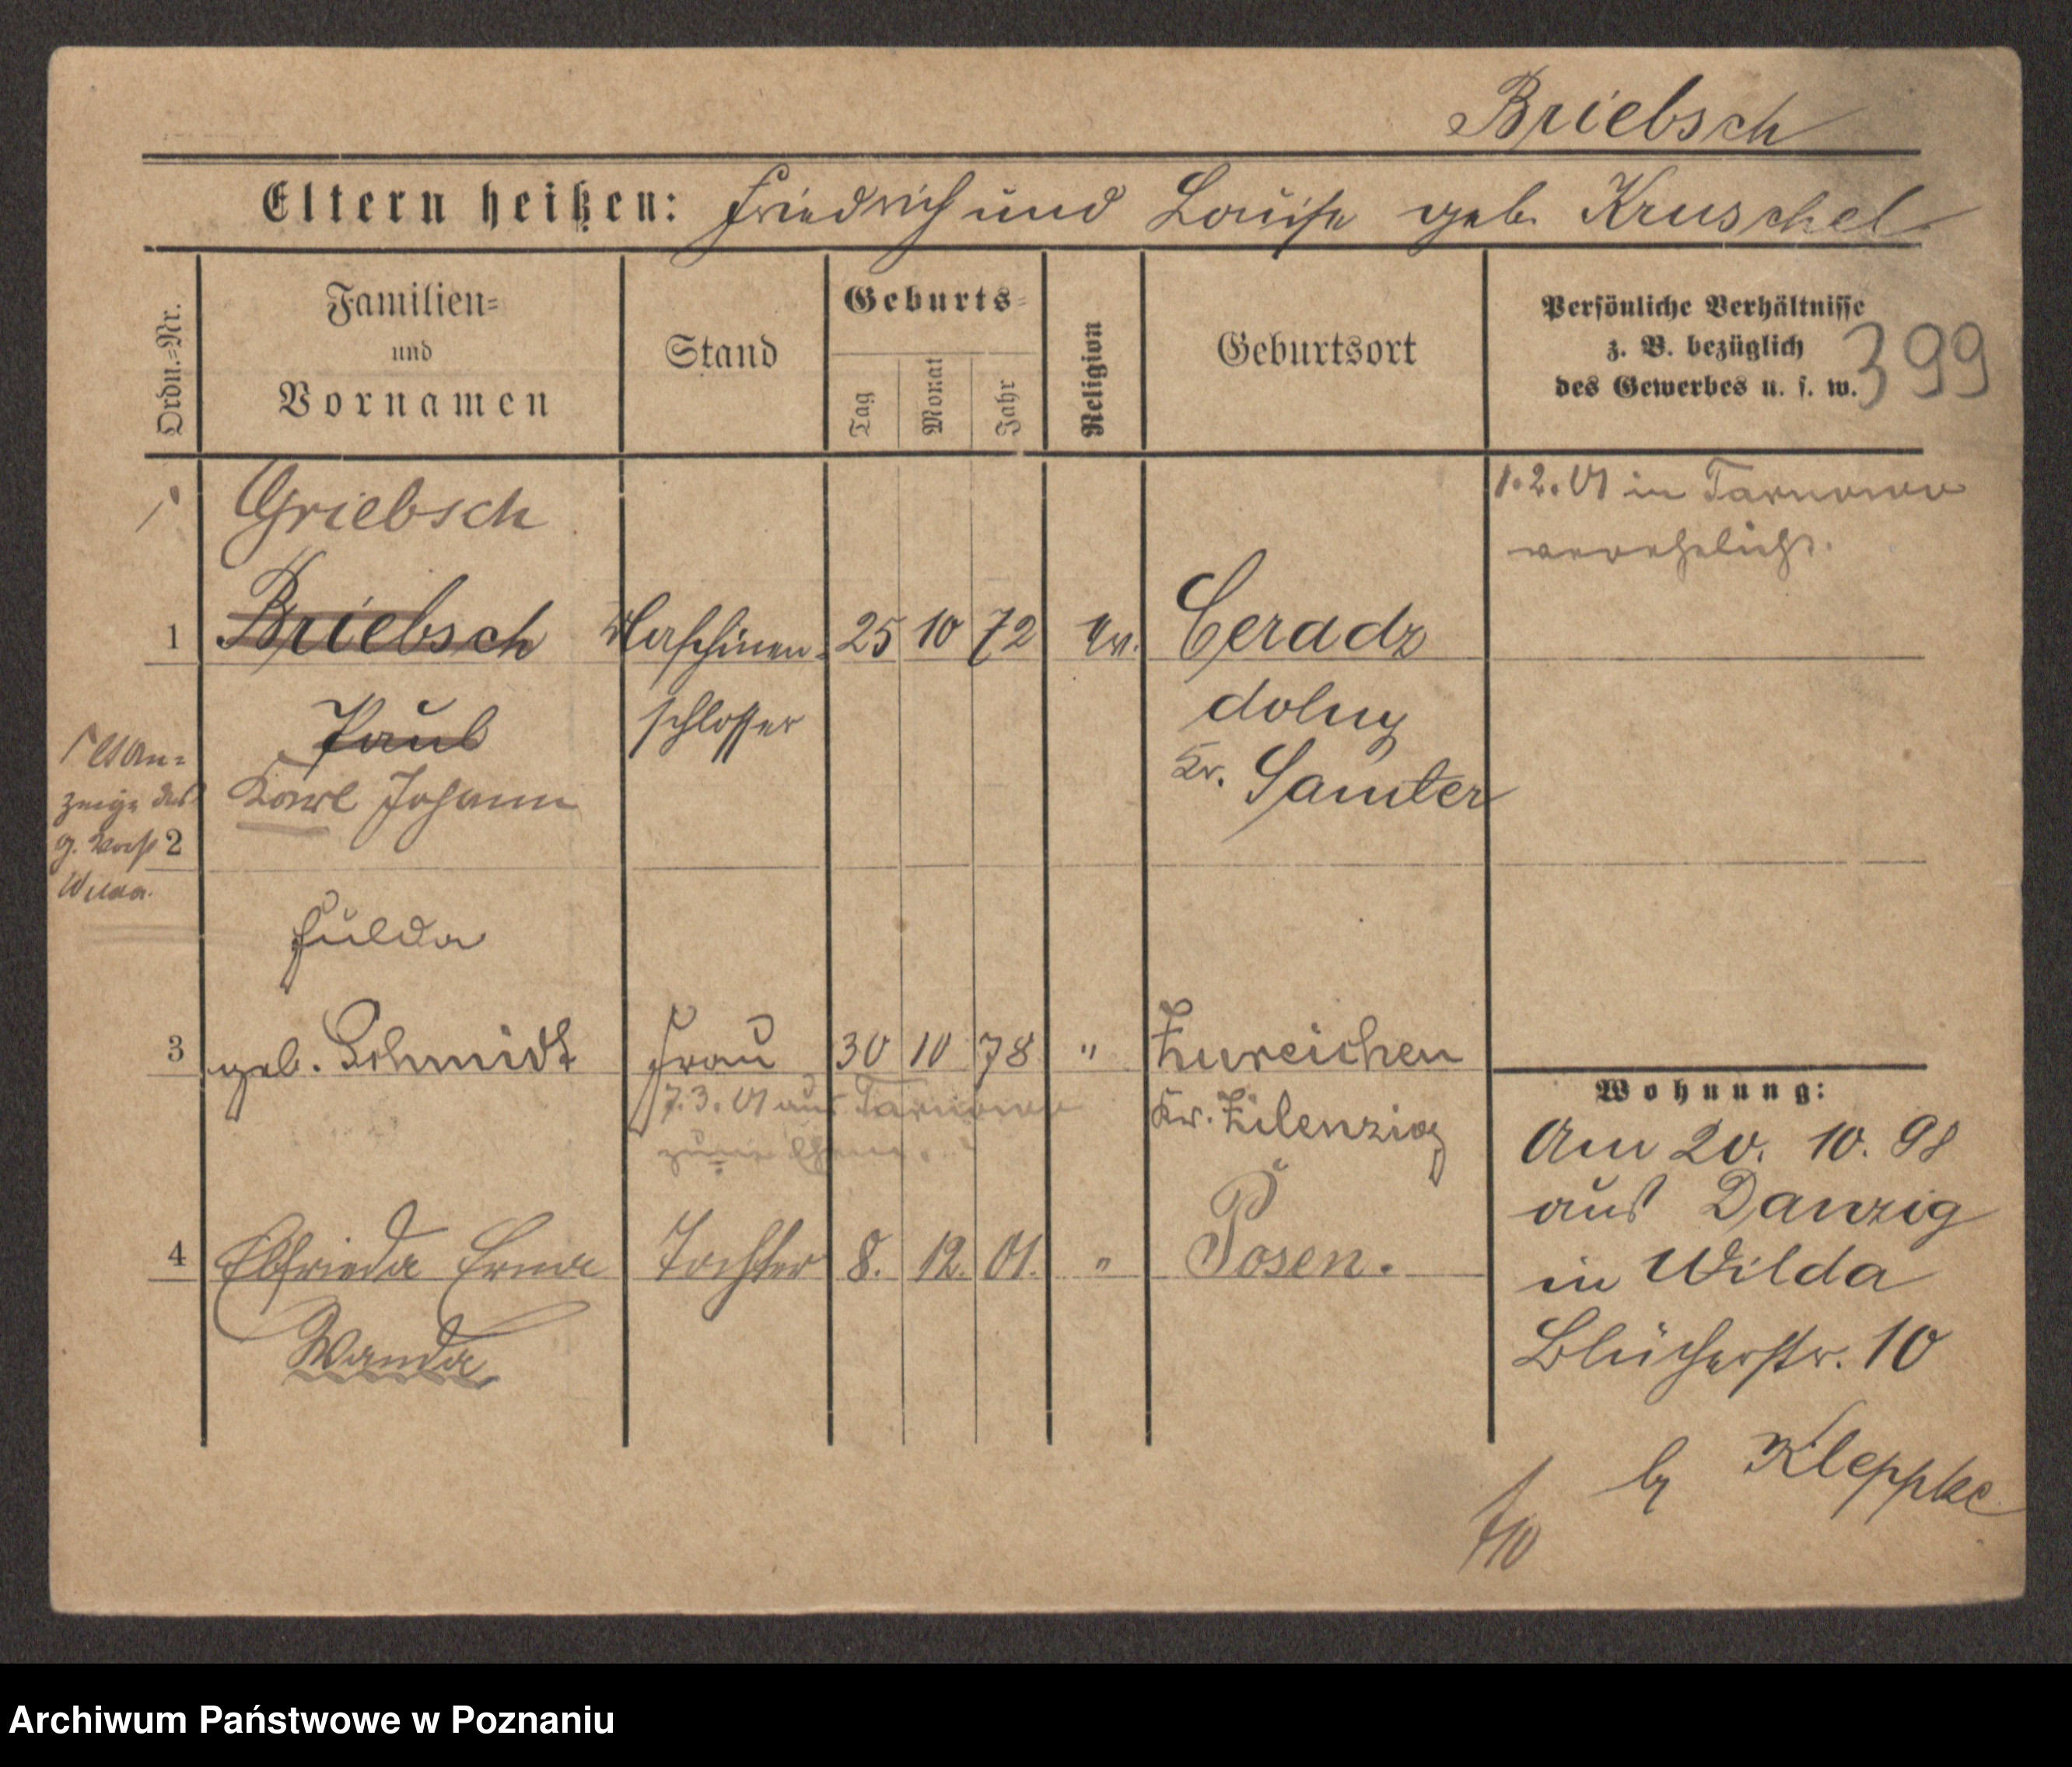 Briebsch
Eltern heißen: Friedrich und Louise geb. Kruschel
Ordn.-Nr.
Familien-
und
Vornamen
Stand
Geburts-
Tag
Monat
Jahr
Religion
Geburtsort
Persönliche Verhältnisse
z. B. bezüglich
des Gewerbes u. s. w.
399
Griebsch
1.2.01 in Tarnowo
verehelicht.
1 Briebsch Maschinen- 25 10 72 Ev. Ceradz
Paul schlosser dolny
Karl Johann Kr. Samter
lt An-
zeige des
g. Vorst 2
Wilda.
Hulda
3 geb. Schmidt Frau 30 10 78 " Zureichen
7.3.01 aus Tarnowo Kr. Zilenzig
4 Elfrieda Erna Tochter 8. 12. 01. " Posen.
Wanda
Wohnung:
Am 20. 10. 98
aus Danzig
in Wilda
Blücherstr. 10
b Kleppke
Archiwum Państwowe w Poznaniu